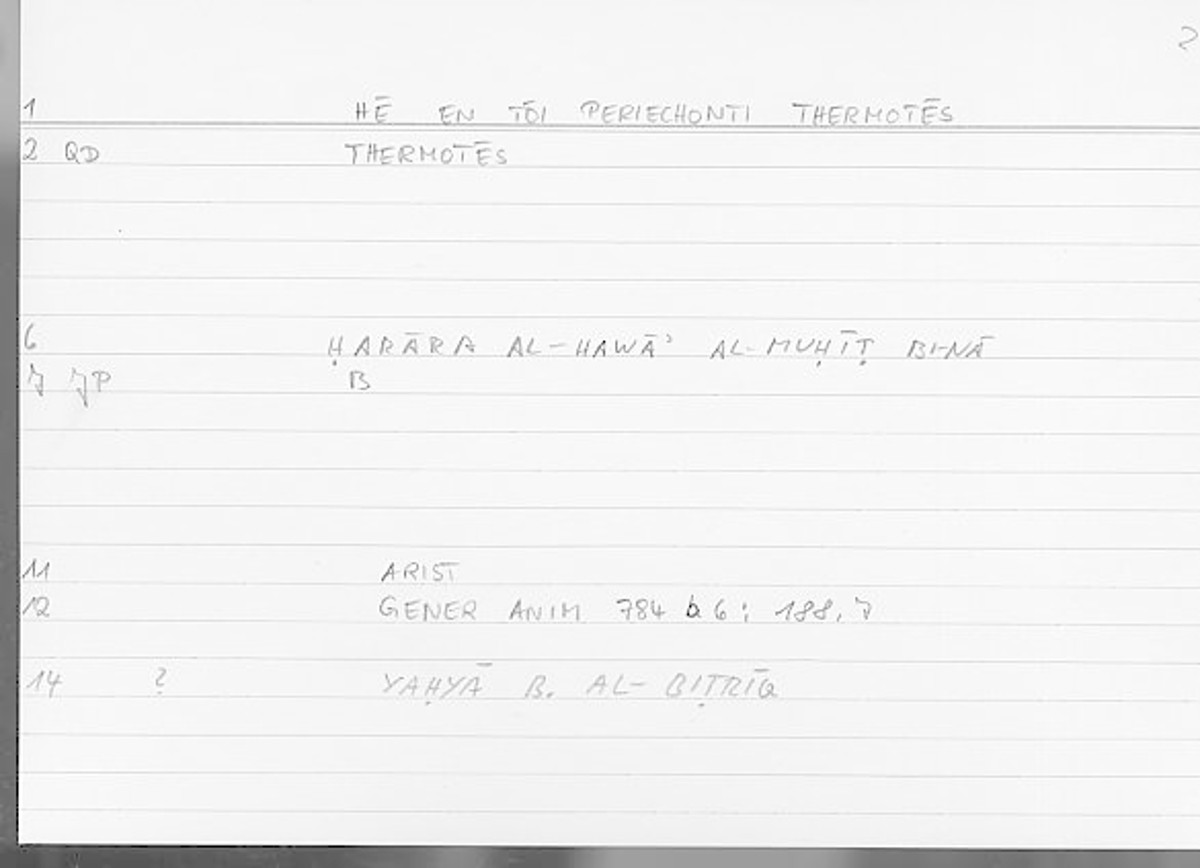 2
1 HĒ EN TŌI PERIECHONTI THERMOTĒS
2 QD THERMOTĒS
6 ḤARĀRA AL-HAWĀʾ AL-MUḤĪṬ BI-NĀ
7 JP B
11 ARIST
12 GENER ANIM 784 b 6 ; 188,7
14 ? YAḤYĀ B. AL-BIṬRĪQ